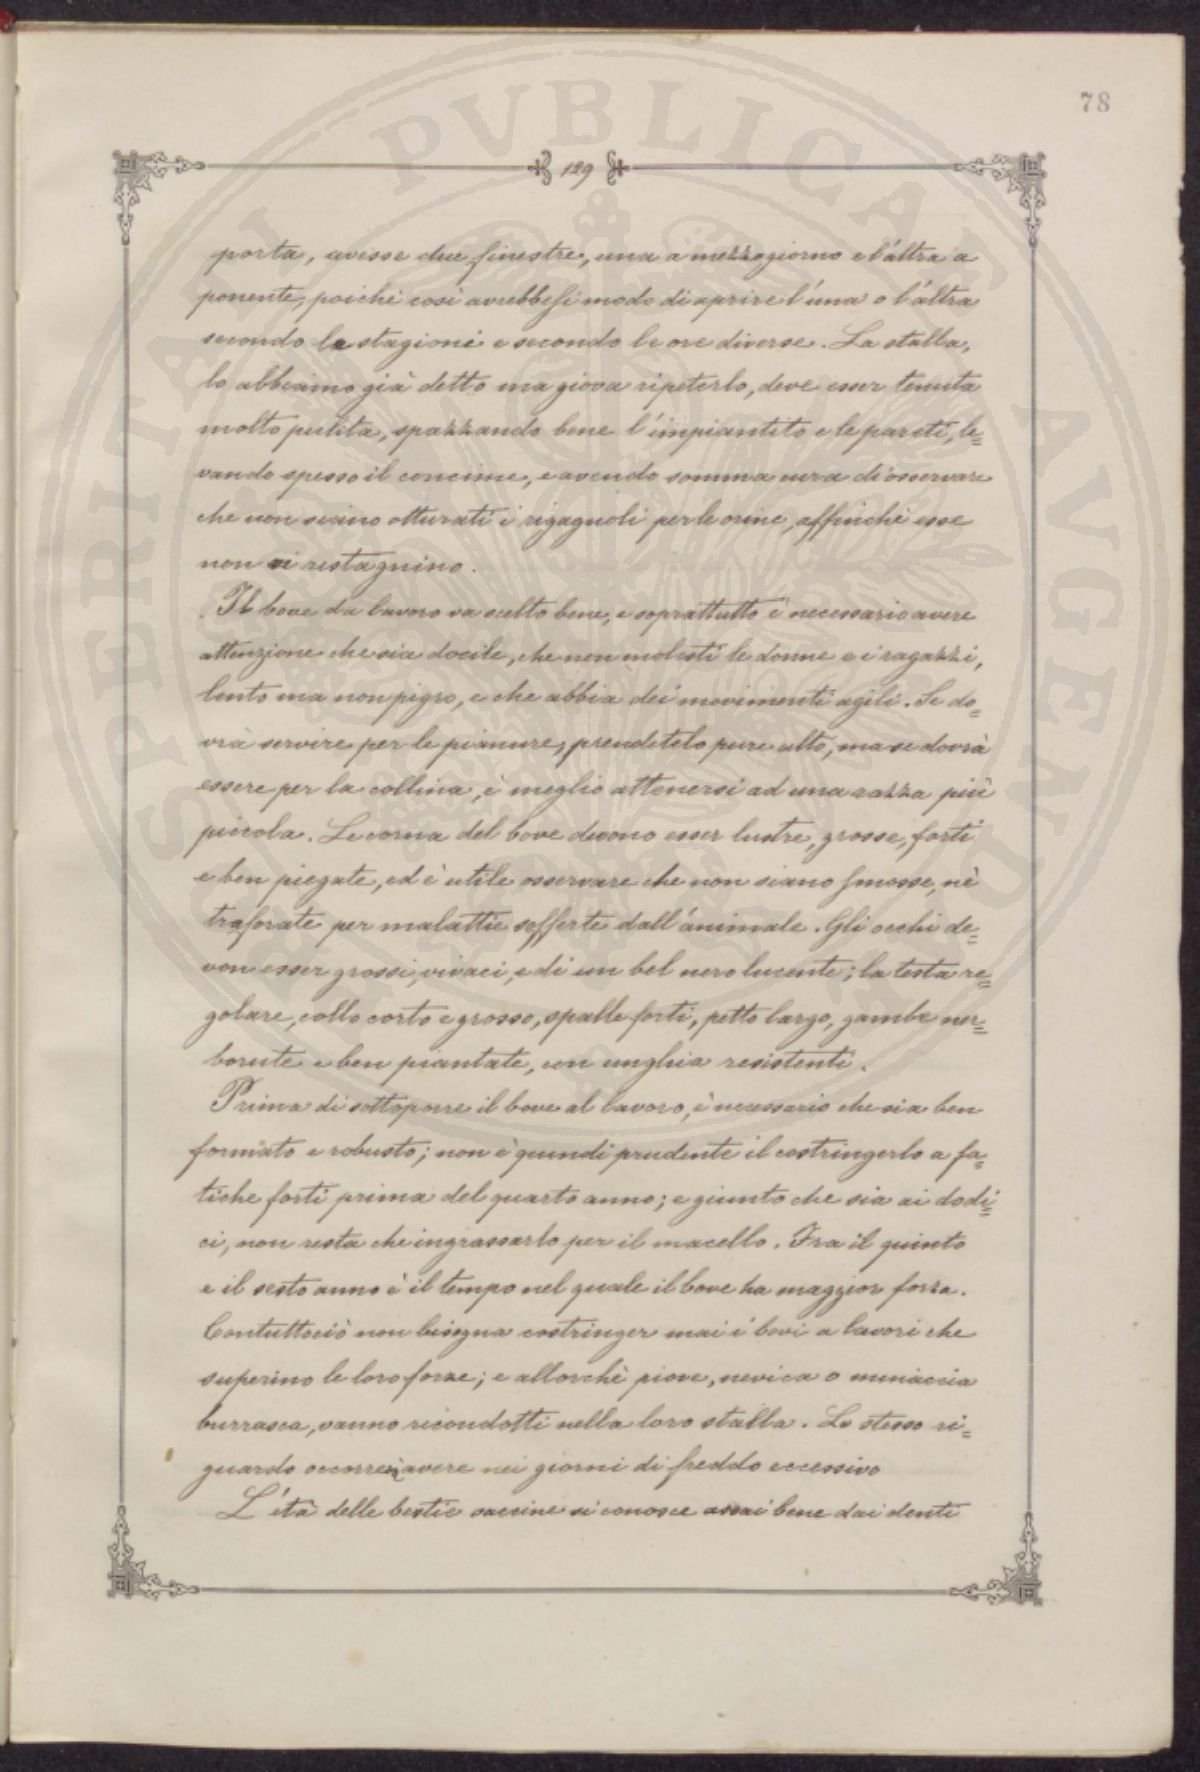 78
129
porta, avesse due finestre, una a mezzogiorno e l'altra a
ponente, poichè così avrebbesi modo di aprire l'una o l'altra
secondo la stagioni e secondo le ore diverse. La stalla,
lo abbiamo già detto ma giova ripeterlo, deve esser tenuta
molto pulita, spazzando bene l'impiantito e le pareti, le=
vando spesso il concime, e avendo somma cura di osservare
che non siano otturati i rigagnoli per le orine, affinchè esse
non vi restagnino.
Il bove da lavoro va scelto bene, e soprattutto è necessario avere
attenzione che sia docile, che non molesti le donne e i ragazzi,
lento ma non pigro, e che abbia dei movimenti agili. Se do=
vrà servire per le pianure, prendetelo pure alto, ma se dovrà
essere per la collina, è meglio attenersi ad una razza più
piccola. Le corna del bove devono esser lustre, grosse, forti
e ben piegate, ed è utile osservare che non siano smosse, nè
traforate per malattie sofferte dall'animale. Gli occhi de=
von esser grossi, vivaci, e di un bel nero lucente; la testa re=
golare, collo corto e grosso, spalle forti, petto largo, gambe ner=
borute e ben piantate, con unghia resistenti.
Prima di sottoporre il bove al lavoro, è necessario che sia ben
formato e robusto; non è quindi prudente il costringerlo a fa=
tiche forti prima del quarto anno; e giunto che sia ai dodi=
ci, non resta che ingrassarlo per il macello. Fra il quinto
e il sesto anno è il tempo nel quale il bove ha maggior forza.
Contuttociò non bisogna costringer mai i bovi a lavori che
superino le loro forze; e allorchè piove, nevica o minaccia
burrasca, vanno ricondotti nella loro stalla. Lo stesso ri=
guardo occorre avere nei giorni di freddo eccessivo
L'età delle bestie vaccine si conosce assai bene dai denti
PUBLICAE AVGENDAE
PROSPERITATI